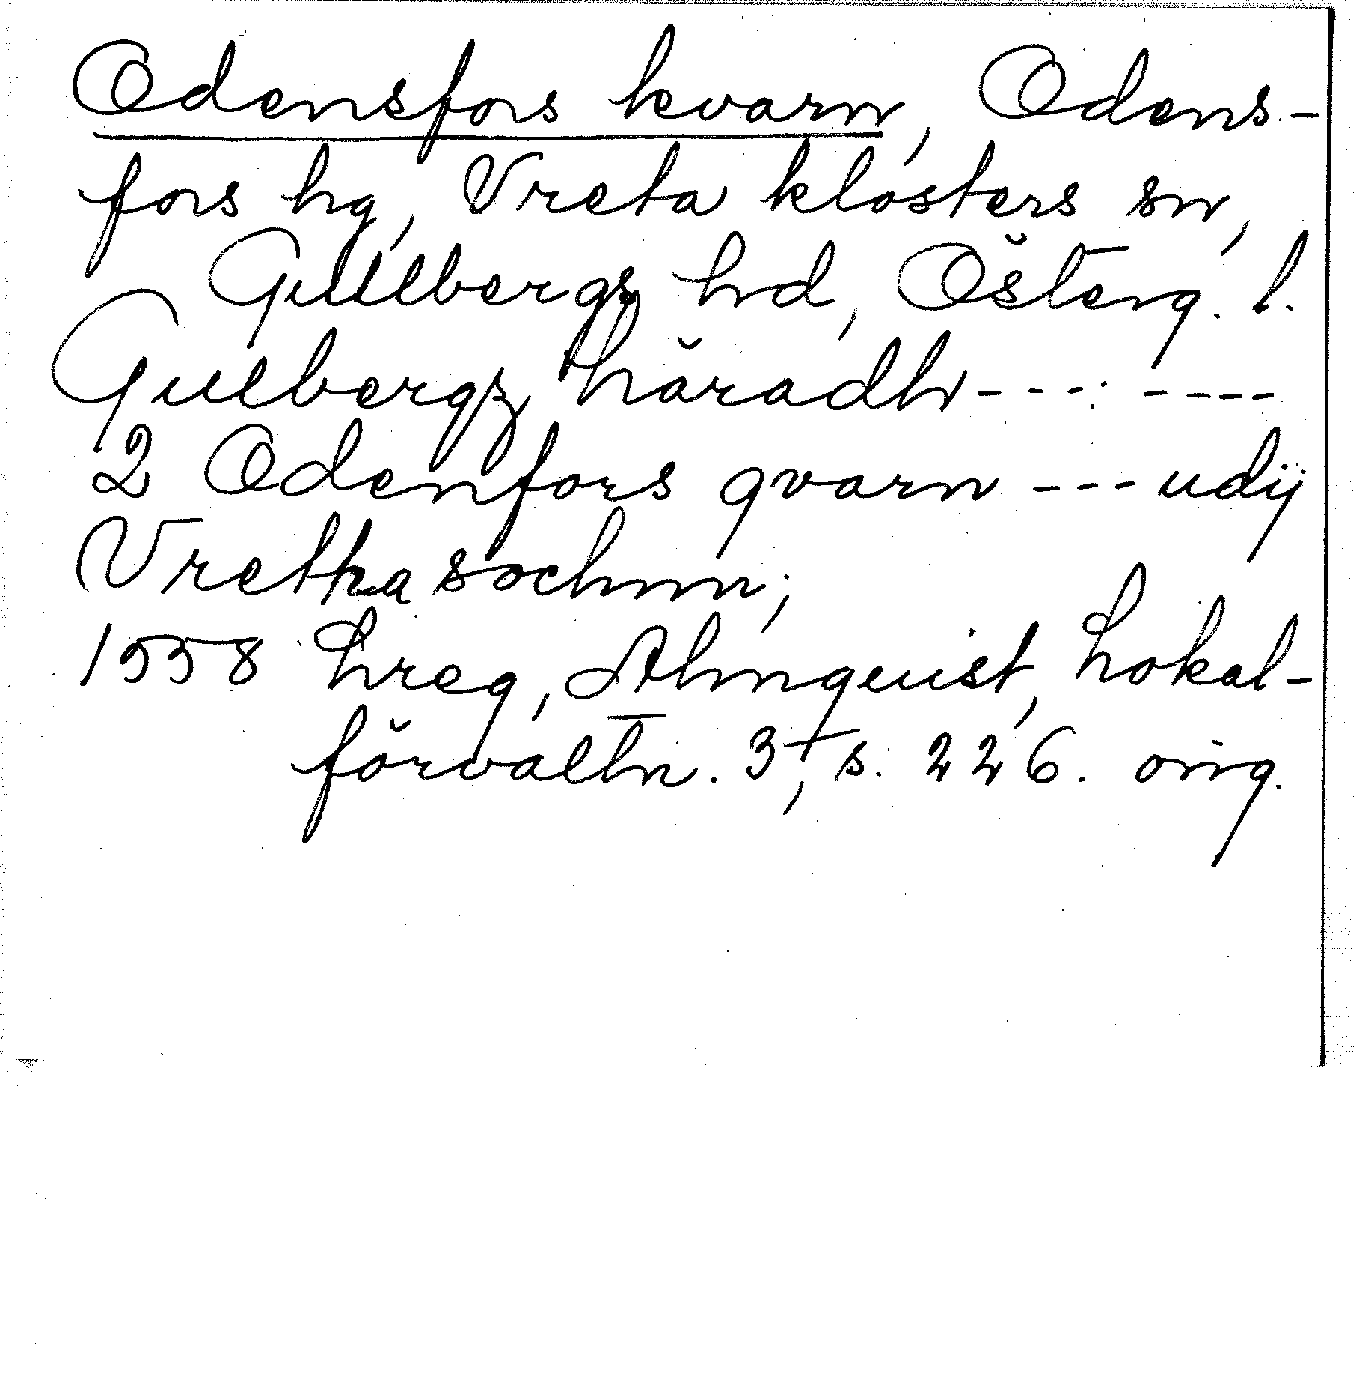 Odensfors kvarn, Odens-
fors hg, Vreta klosters sn,
Gullbergs hd, Österg. l.
Gulbergz häradh - - - : - - - -
2 Odenfors qvarn - - - udij
Vretha sochnn;
1558 Lreg, Almquist, Lokal-
förvaltn. 3†, s. 226. orig.